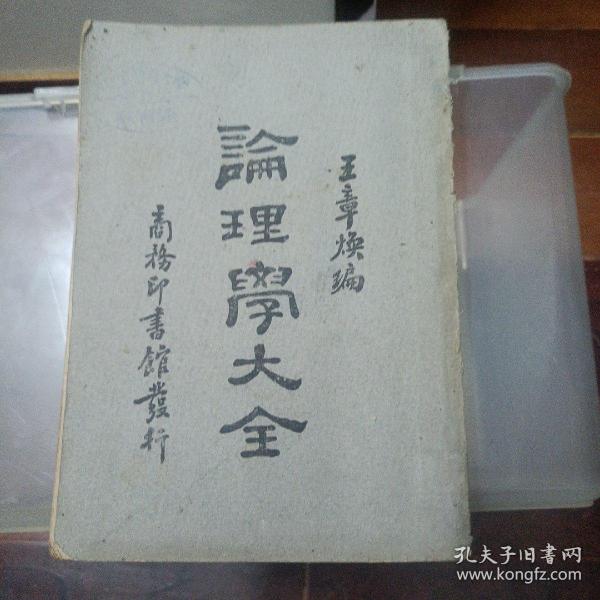 王章煥編
論理學大全
商務印書館發行
孔夫子旧书网
www.kongfz.com